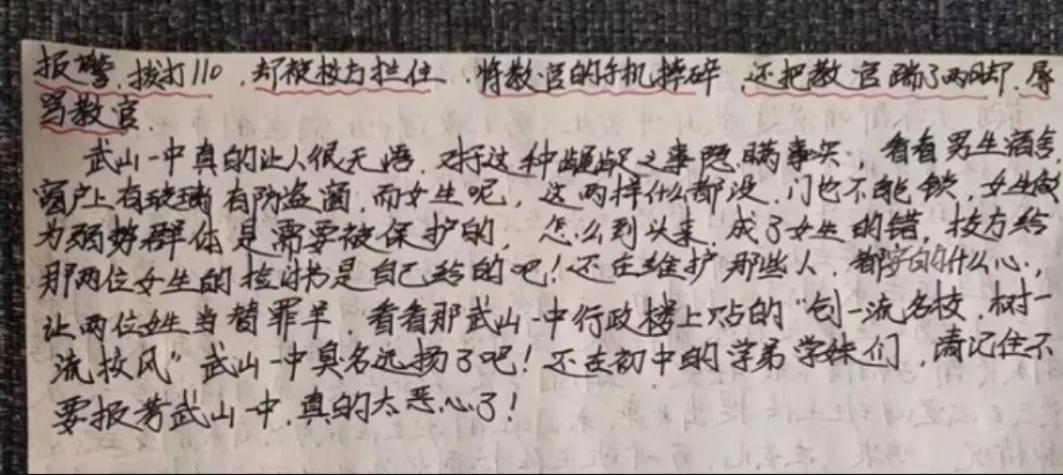 报警,拨打110,却被校方拦住,将教官的手机摔碎,还把教官踹了两脚,辱
骂教官.
武山一中真的让人很无语,对于这种龌龊之事隐瞒事实,看看男生宿舍
窗户上有玻璃有防盗窗,而女生呢,这两样什么都没,门也不能锁,女生做
为弱势群体是需要被保护的,怎么到头来,成了女生的错,校方给
那两位女生的检讨书是自己给的吧!还在维护那些人,都安的什么心,
让两位女生当替罪羊,看看那武山一中行政楼上贴的"创一流名校,树一
流校风"武山一中臭名远扬了吧!还在初中的学弟学妹们,请记住不
要报考武山一中,真的太恶心了!